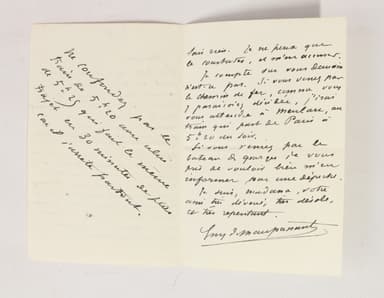 soir rien. Je ne peux que
le constater, et m'en accuser.
Je compte sur vous demain
n'est-ce pas. Si vous venez par
le chemin de fer, comme vous
y paraissiez décidée, j'irai
vous attendre à Meulan, au
train qui part de Paris à
5h 20 du soir.
Si vous venez par le
bateau de Georges je vous
prie de vouloir bien m'en
informer par une dépêche.
Je suis, madame, votre
ami très dévoué, très désolé
et très repentant.
Guy de Maupassant
Ne confondez pas le
train de 5h20 avec celui
de 5h 25 qui fait le même
trajet en 30 minutes de plus
car il s'arrête partout.